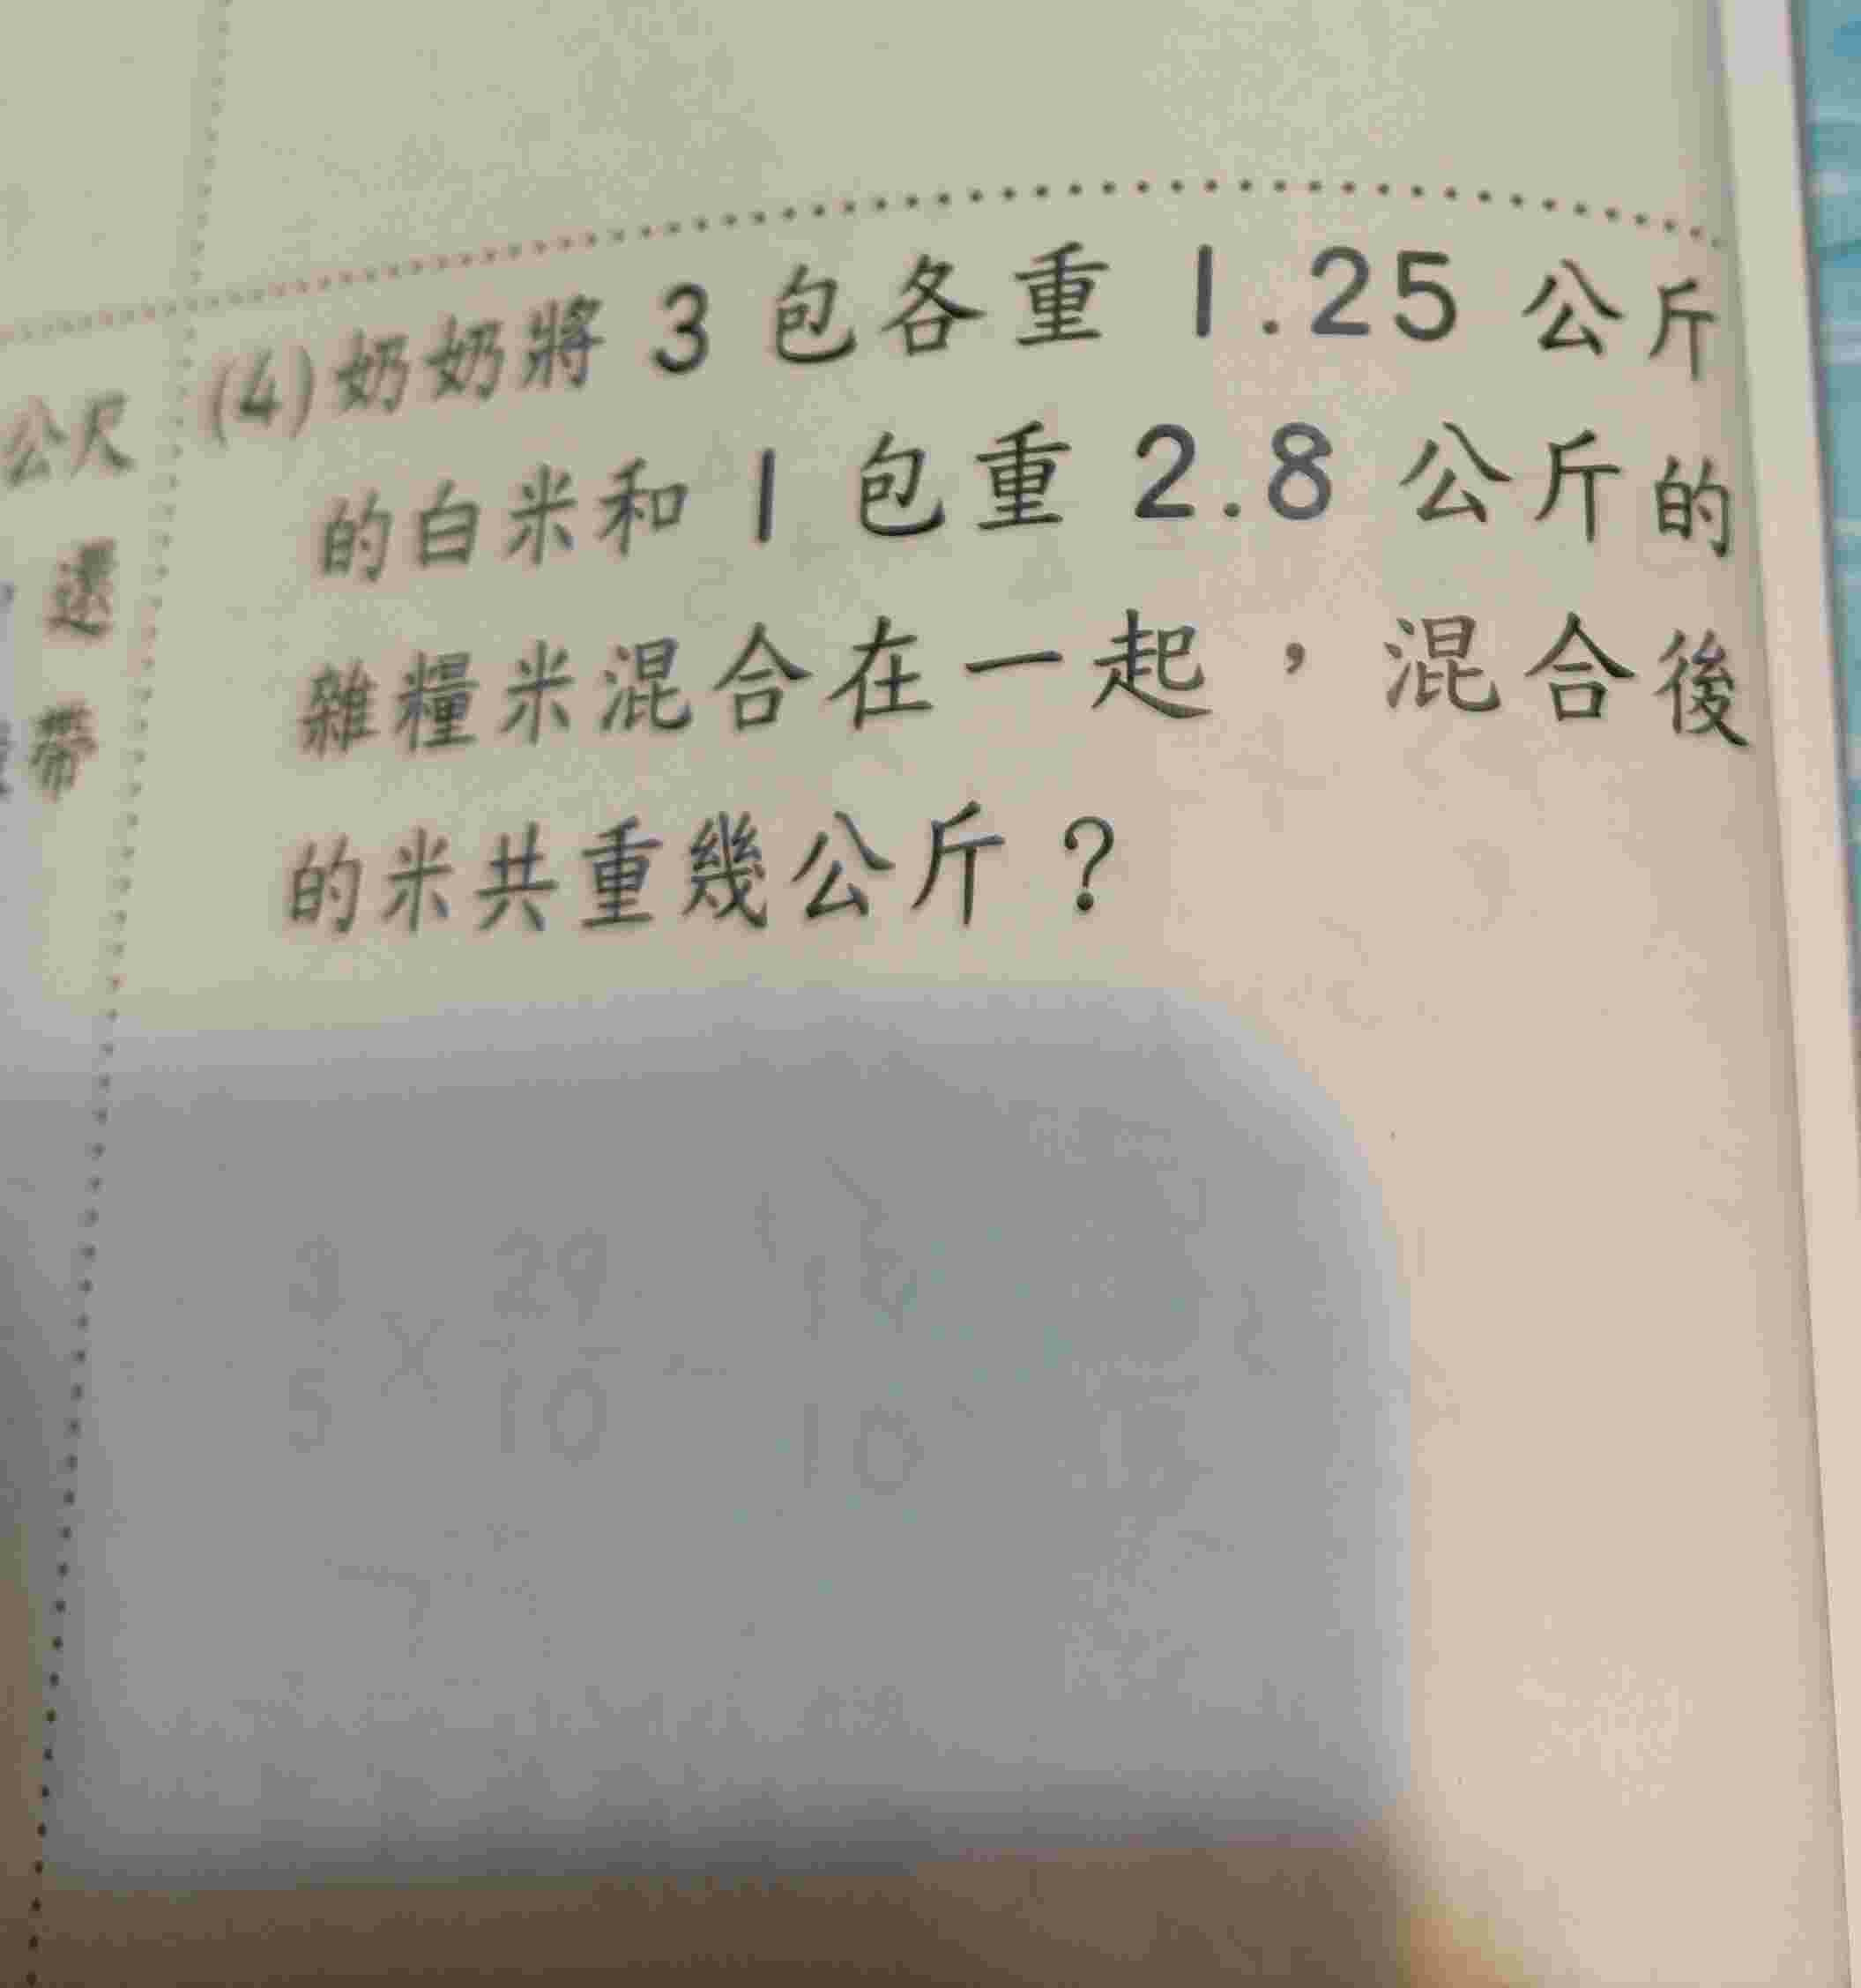 (4)奶奶將 3 包各重 1.25 公斤
的白米和 1 包重 2.8 公斤的
雜糧米混合在一起，混合後
的米共重幾公斤？
公尺
還
帶